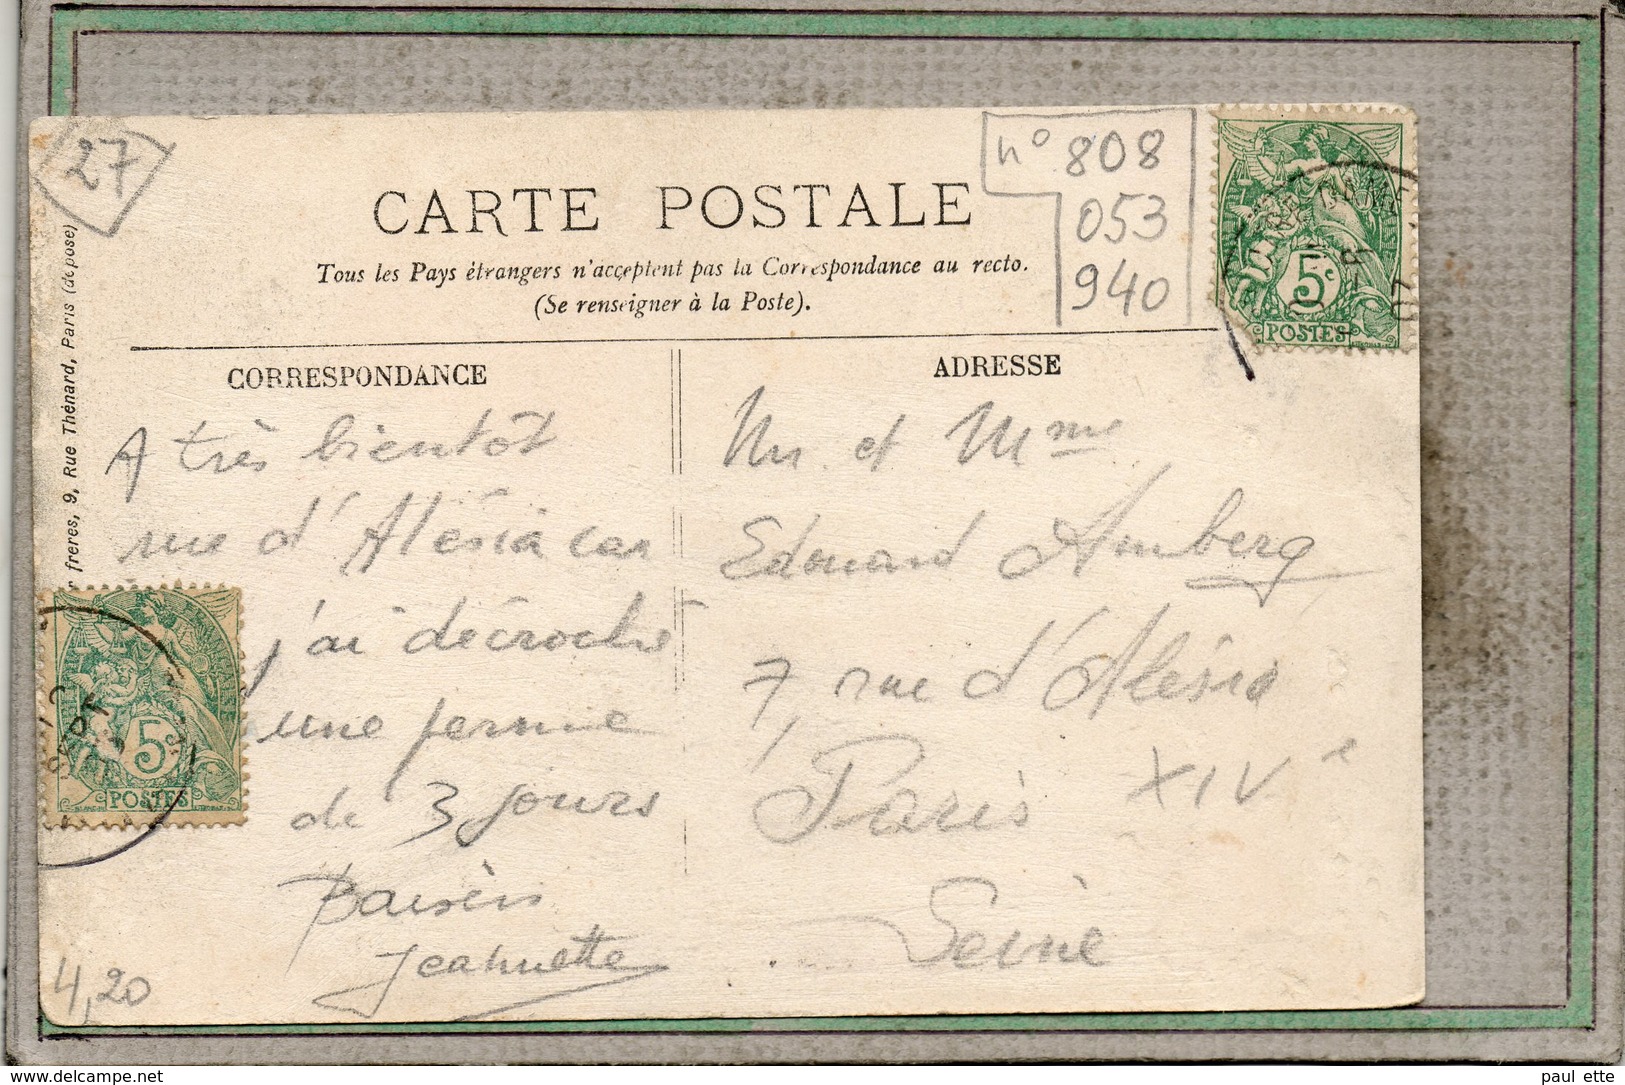 27
nº 808
053
940
CARTE POSTALE
Tous les Pays étrangers n'acceptent pas la Correspondance au recto.
(Se renseigner à la Poste).
frères, 9, Rue Thénard, Paris (déposé)
5c
POSTES
07
CORRESPONDANCE
A très bientôt
rue d'Alésia car
j'ai décroché
une perme
de 3 jours
Jeannette
5c
POSTES
4,20
ADRESSE
Mr et Mme
Edouard Amberg
7, rue d'Alésia
Paris XIVe
Seine
www.delcampe.net
paul ette